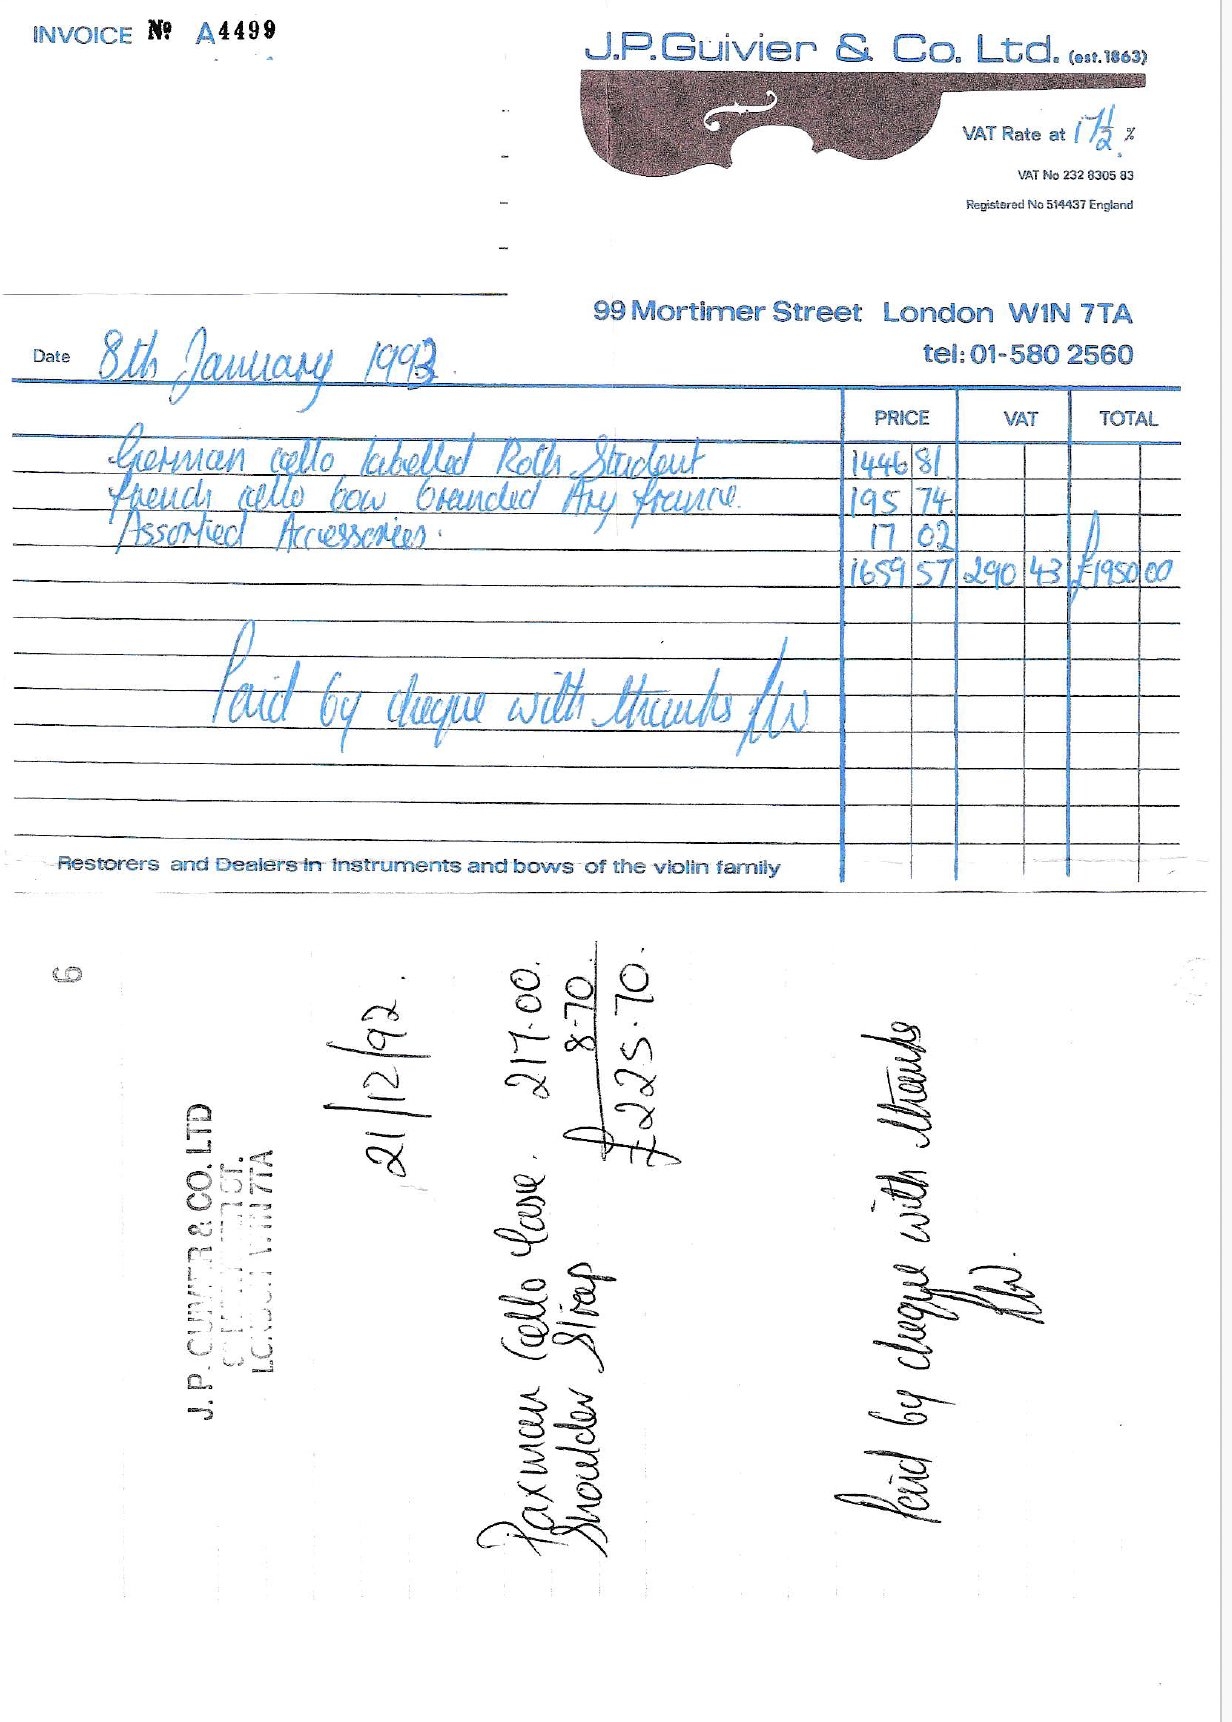 INVOICE Nº A4499
J.P.Guivier & Co. Ltd. (est.1863)
VAT Rate at 17½ %
VAT No 232 8305 83
Registered No 514437 England
99 Mortimer Street London W1N 7TA
tel: 01-580 2560
Date 8th January 1993.
PRICE VAT TOTAL
German cello labelled Roth Student 1446 81
French cello bow branded Ary France. 195 74.
Assorted Accessories. 17 02
1659 57 290 43 £1950 00
Paid by cheque with thanks
Restorers and Dealers in instruments and bows of the violin family
6
J. P. GUIVIER & CO. LTD
ST.
LONDON W1N 7TA
21/12/92.
Paxman Cello Case. 217.00.
Shoulder Strap 8-70.
£225.70.
Paid by cheque with thanks